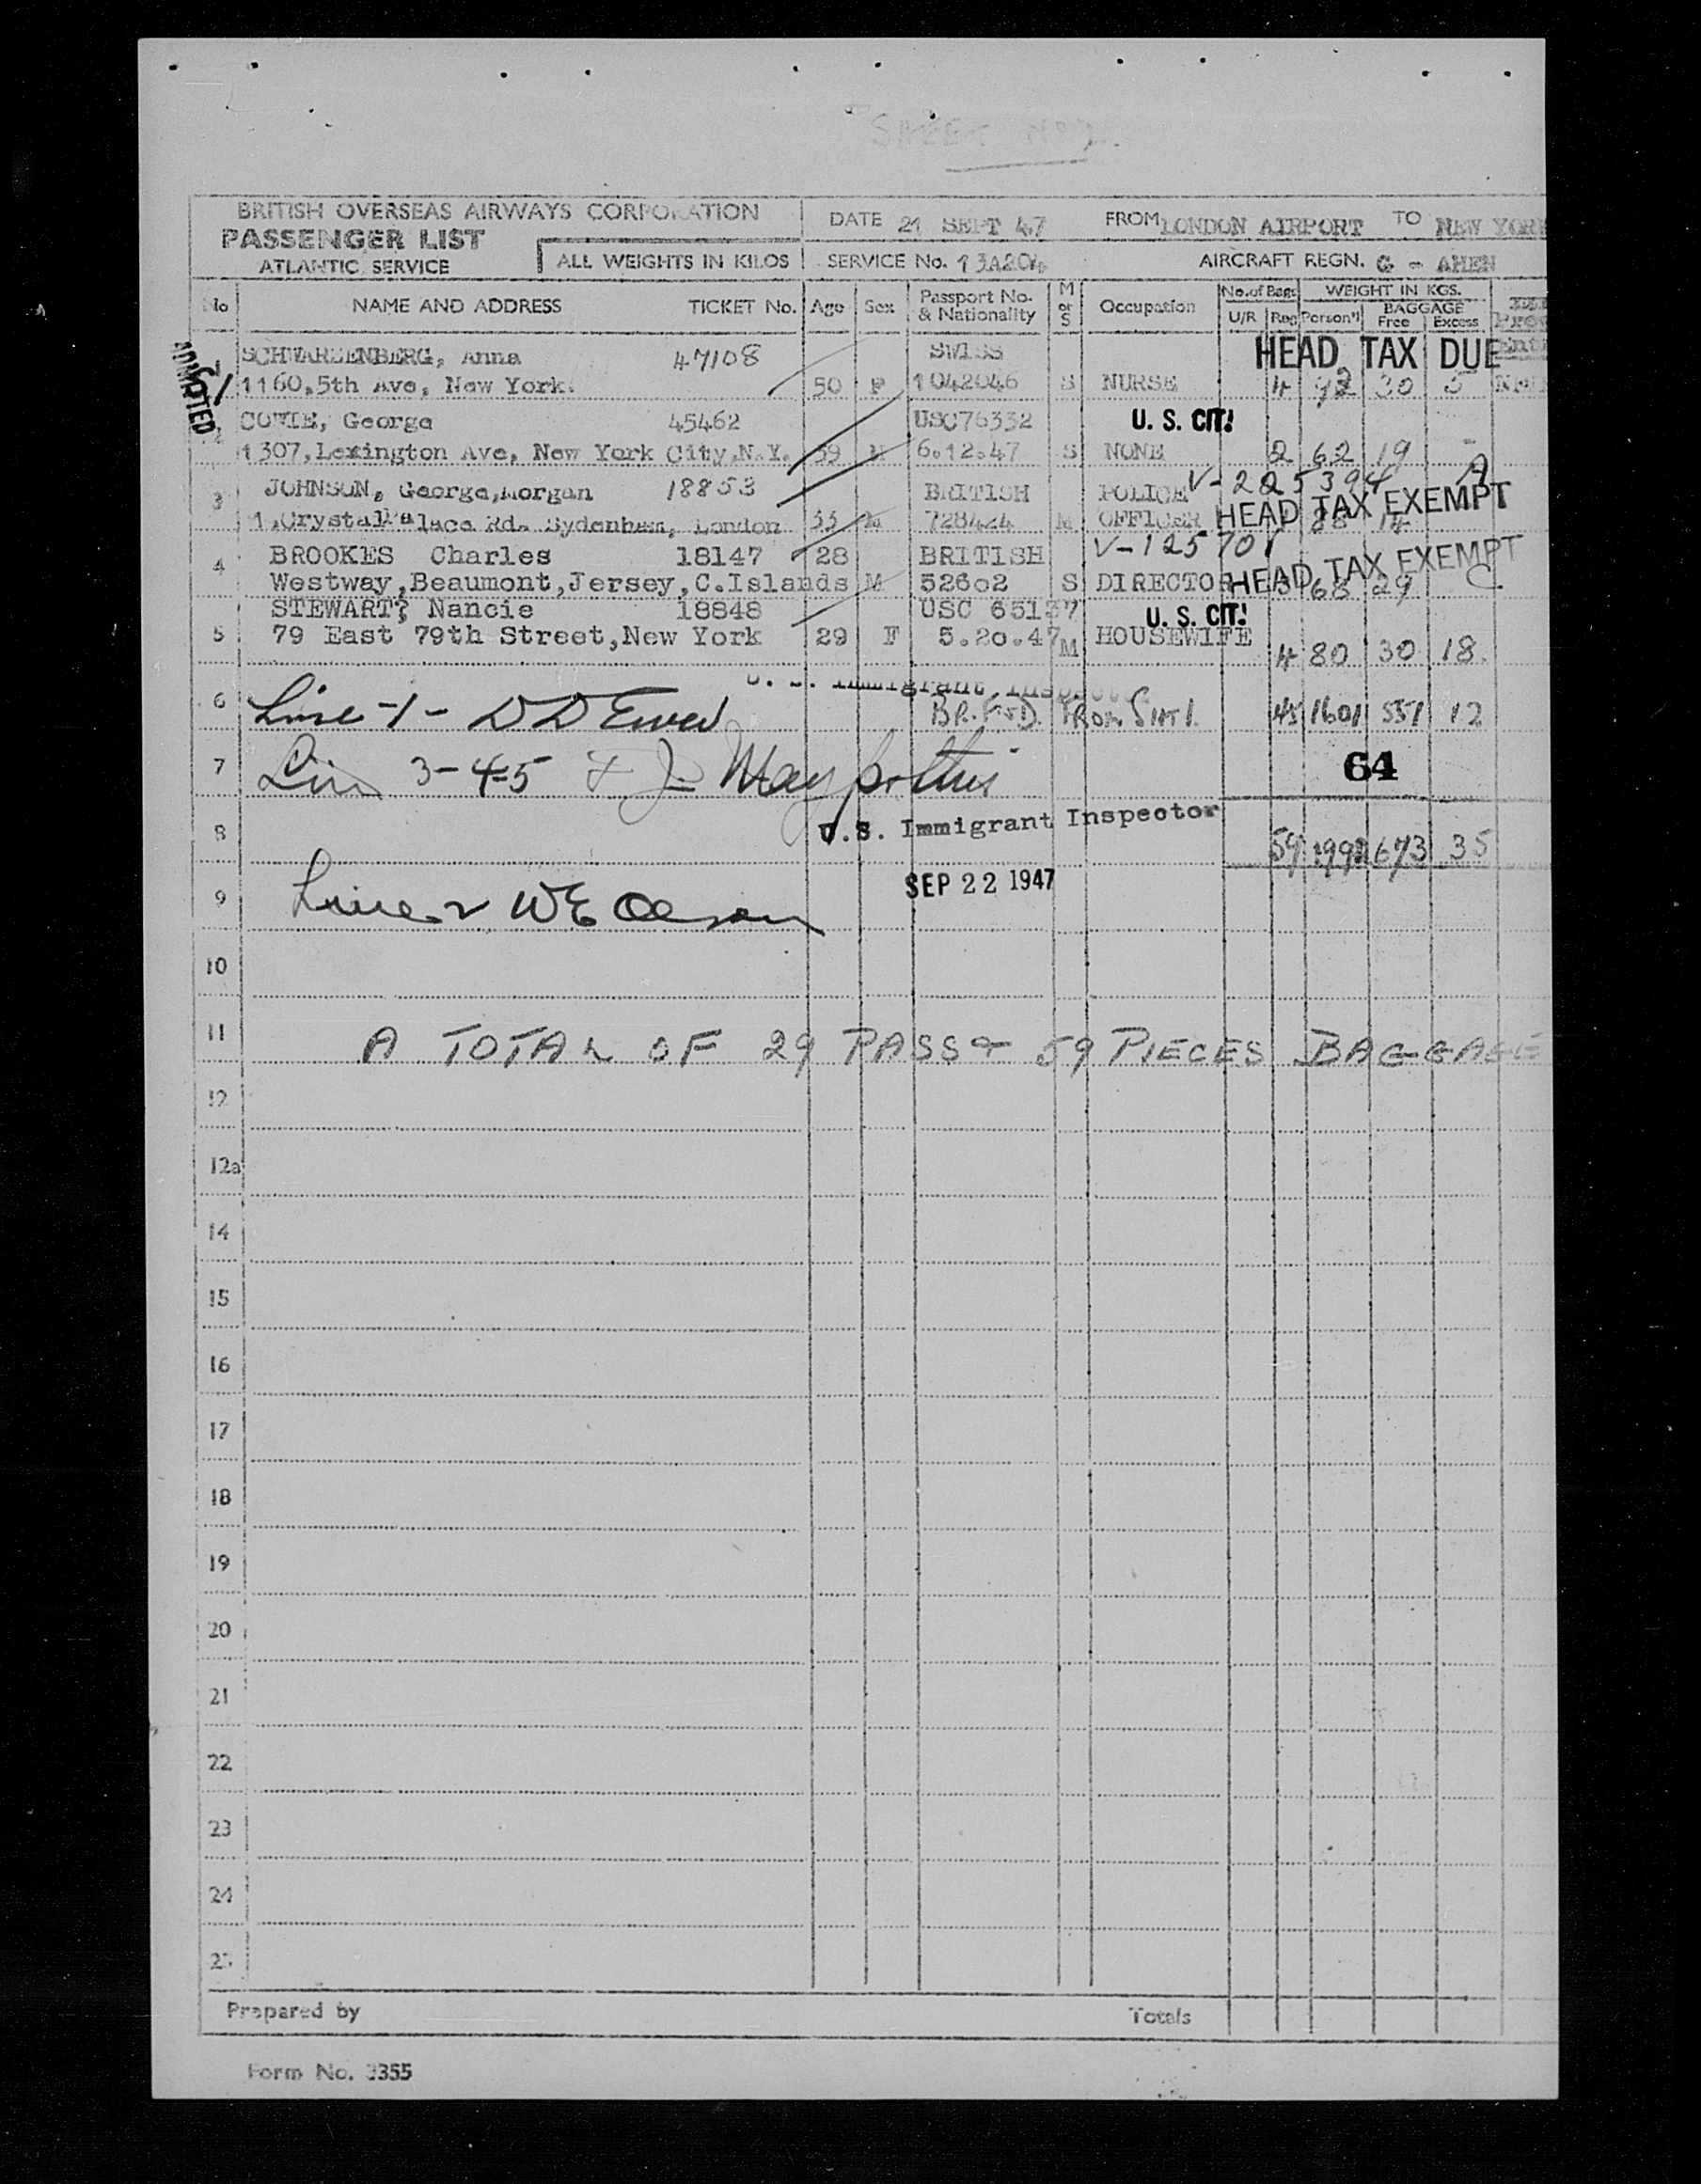 SHEET No 2.
BRITISH OVERSEAS AIRWAYS CORPORATION
PASSENGER LIST
ATLANTIC SERVICE
ALL WEIGHTS IN KILOS
DATE 21 SEPT 47 FROM LONDON AIRPORT TO NEW YORK
SERVICE No. 13A204 AIRCRAFT REGN. G - AHEN
No NAME AND ADDRESS TICKET No. Age Sex Passport No. & Nationality M or S Occupation No. of Bags U/R Reg WEIGHT IN KGS. Person'l BAGGAGE Free Excess
ADMITTED
SCHWARZENBERG, Anna 47108 SWISS HEAD TAX DUE
1160,5th Ave, New York. 50 F 1042046 S NURSE 4 92 30 5
2 COWIE, George 45462 USC76332 U. S. CIT!
1307,Lexington Ave, New York City,N.Y. 59 M 6.12.47 S NONE 2 62 19 -
3 JOHNSON, George,Morgan 18853 BRITISH POLICE V-225394 A
1,Crystal Palace Rd. Sydenham, London 33 M 728424 M OFFICER HEAD TAX EXEMPT 88 14
4 BROOKES Charles 18147 28 BRITISH V-125701
Westway,Beaumont,Jersey,C.Islands M 52602 S DIRECTOR HEAD TAX EXEMPT 68 29
STEWART, Nancie 18848 USC 65137 U. S. CIT!
5 79 East 79th Street,New York 29 F 5.20.47 M HOUSEWIFE 4 80 30 18.
U. S. Immigrant Inspector
6 Line-1- BR. F'D. FROM SHT 1. 45 1601 551 12
7 3-4-5 64
8 U.S. Immigrant Inspector 59 1991 673 35
SEP 22 1947
9 Line 2 W E Olesen
10
11 A TOTAL OF 29 PASS & 59 PIECES BAGGAGE
12
12a
14
15
16
17
18
19
20
21
22
23
24
Prepared by Totals
Form No. 3355